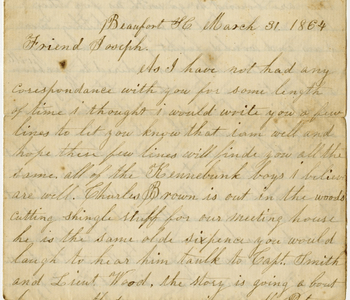 Beaufort SC March 31 1864
Friend Joseph.
As I have not had any
corespondance with you for some length
of time i thought i would write you a few
lines to let you know that i am well and
hope these few lines will finde you all the
same. all of the Kennebunk boys I believ
are well. Charles Brown is out in the woods
cutting shingle stuff for our meeting house
he is the same olde sixpence you would
laugh to hear him taulk to Capt. Smith
and Lieut. Wood. the story is going a bout